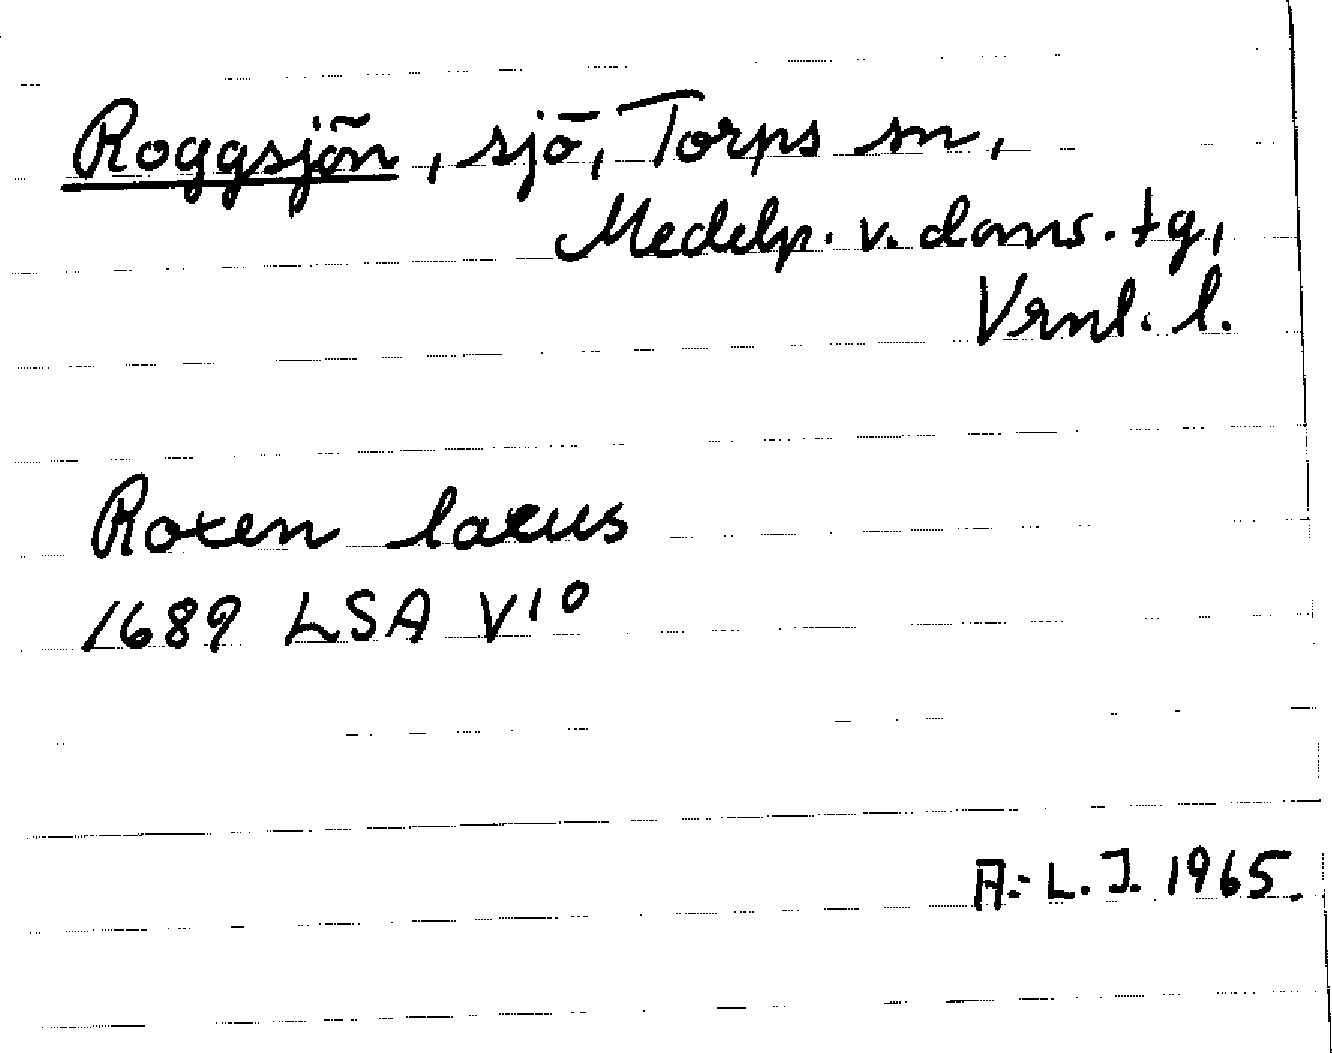 Roggsjön, sjö, Torps sn,
Medelp. v. doms. tg,
Vrnl. l.
Roxen lacus
1689 LSA V 10
A.-L. J. 1965.